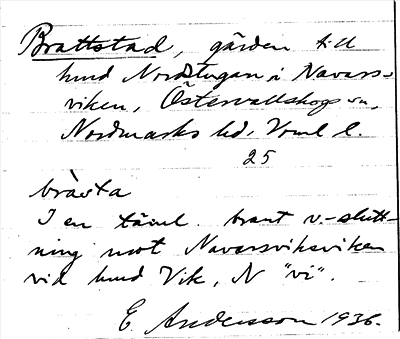 Brattstad, gården till
hmd Nordstugan i Navars-
viken, Östervallskogs sn,
Nordmarks hd, Vrml l.
25
bràsta
I en täml. brant v.-slutt-
ning mot Navarsviksviken
vid hmd Vik, N "vi".
E. Andersson 1936.